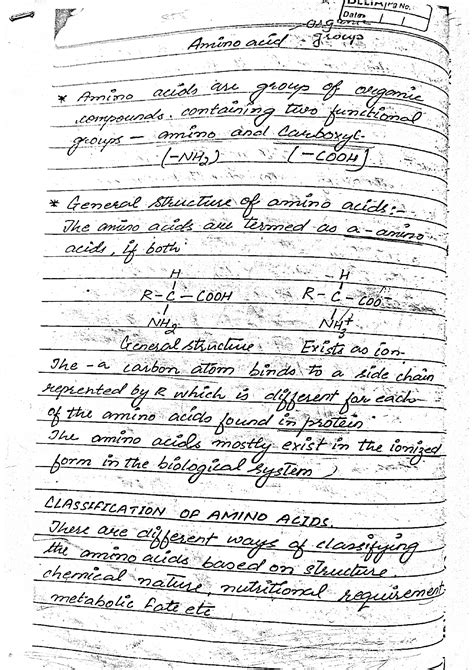 DELTA Pg No.
Date
organic
Amino acid - groups
* Amino acids are group of organic
compounds. containing two functional
groups - amino and Carboxyl-
(-NH2) (-COOH)
* General structure of amino acids:-
The amino acids are termed as a-amino
acids, if both
H - H
R-C-COOH R-C-COO-
NH2 NH3+
General structure Exists as ion-
The -a carbon atom binds to a side chain
reprented by R which is different for each
of the amino acids found in protein
The amino acids mostly exist in the ionized
form in the biological system )
CLASSIFICATION OF AMINO ACIDS.
There are different ways of classifying
the amino acids based on structure
chemical nature, nutritional requirement
metabolic fate etc